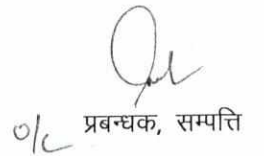 o/c प्रबन्धक, सम्पत्ति